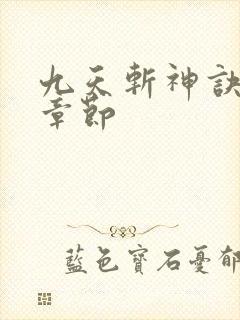 九天斬神訣
章節
藍色寶石憂郁